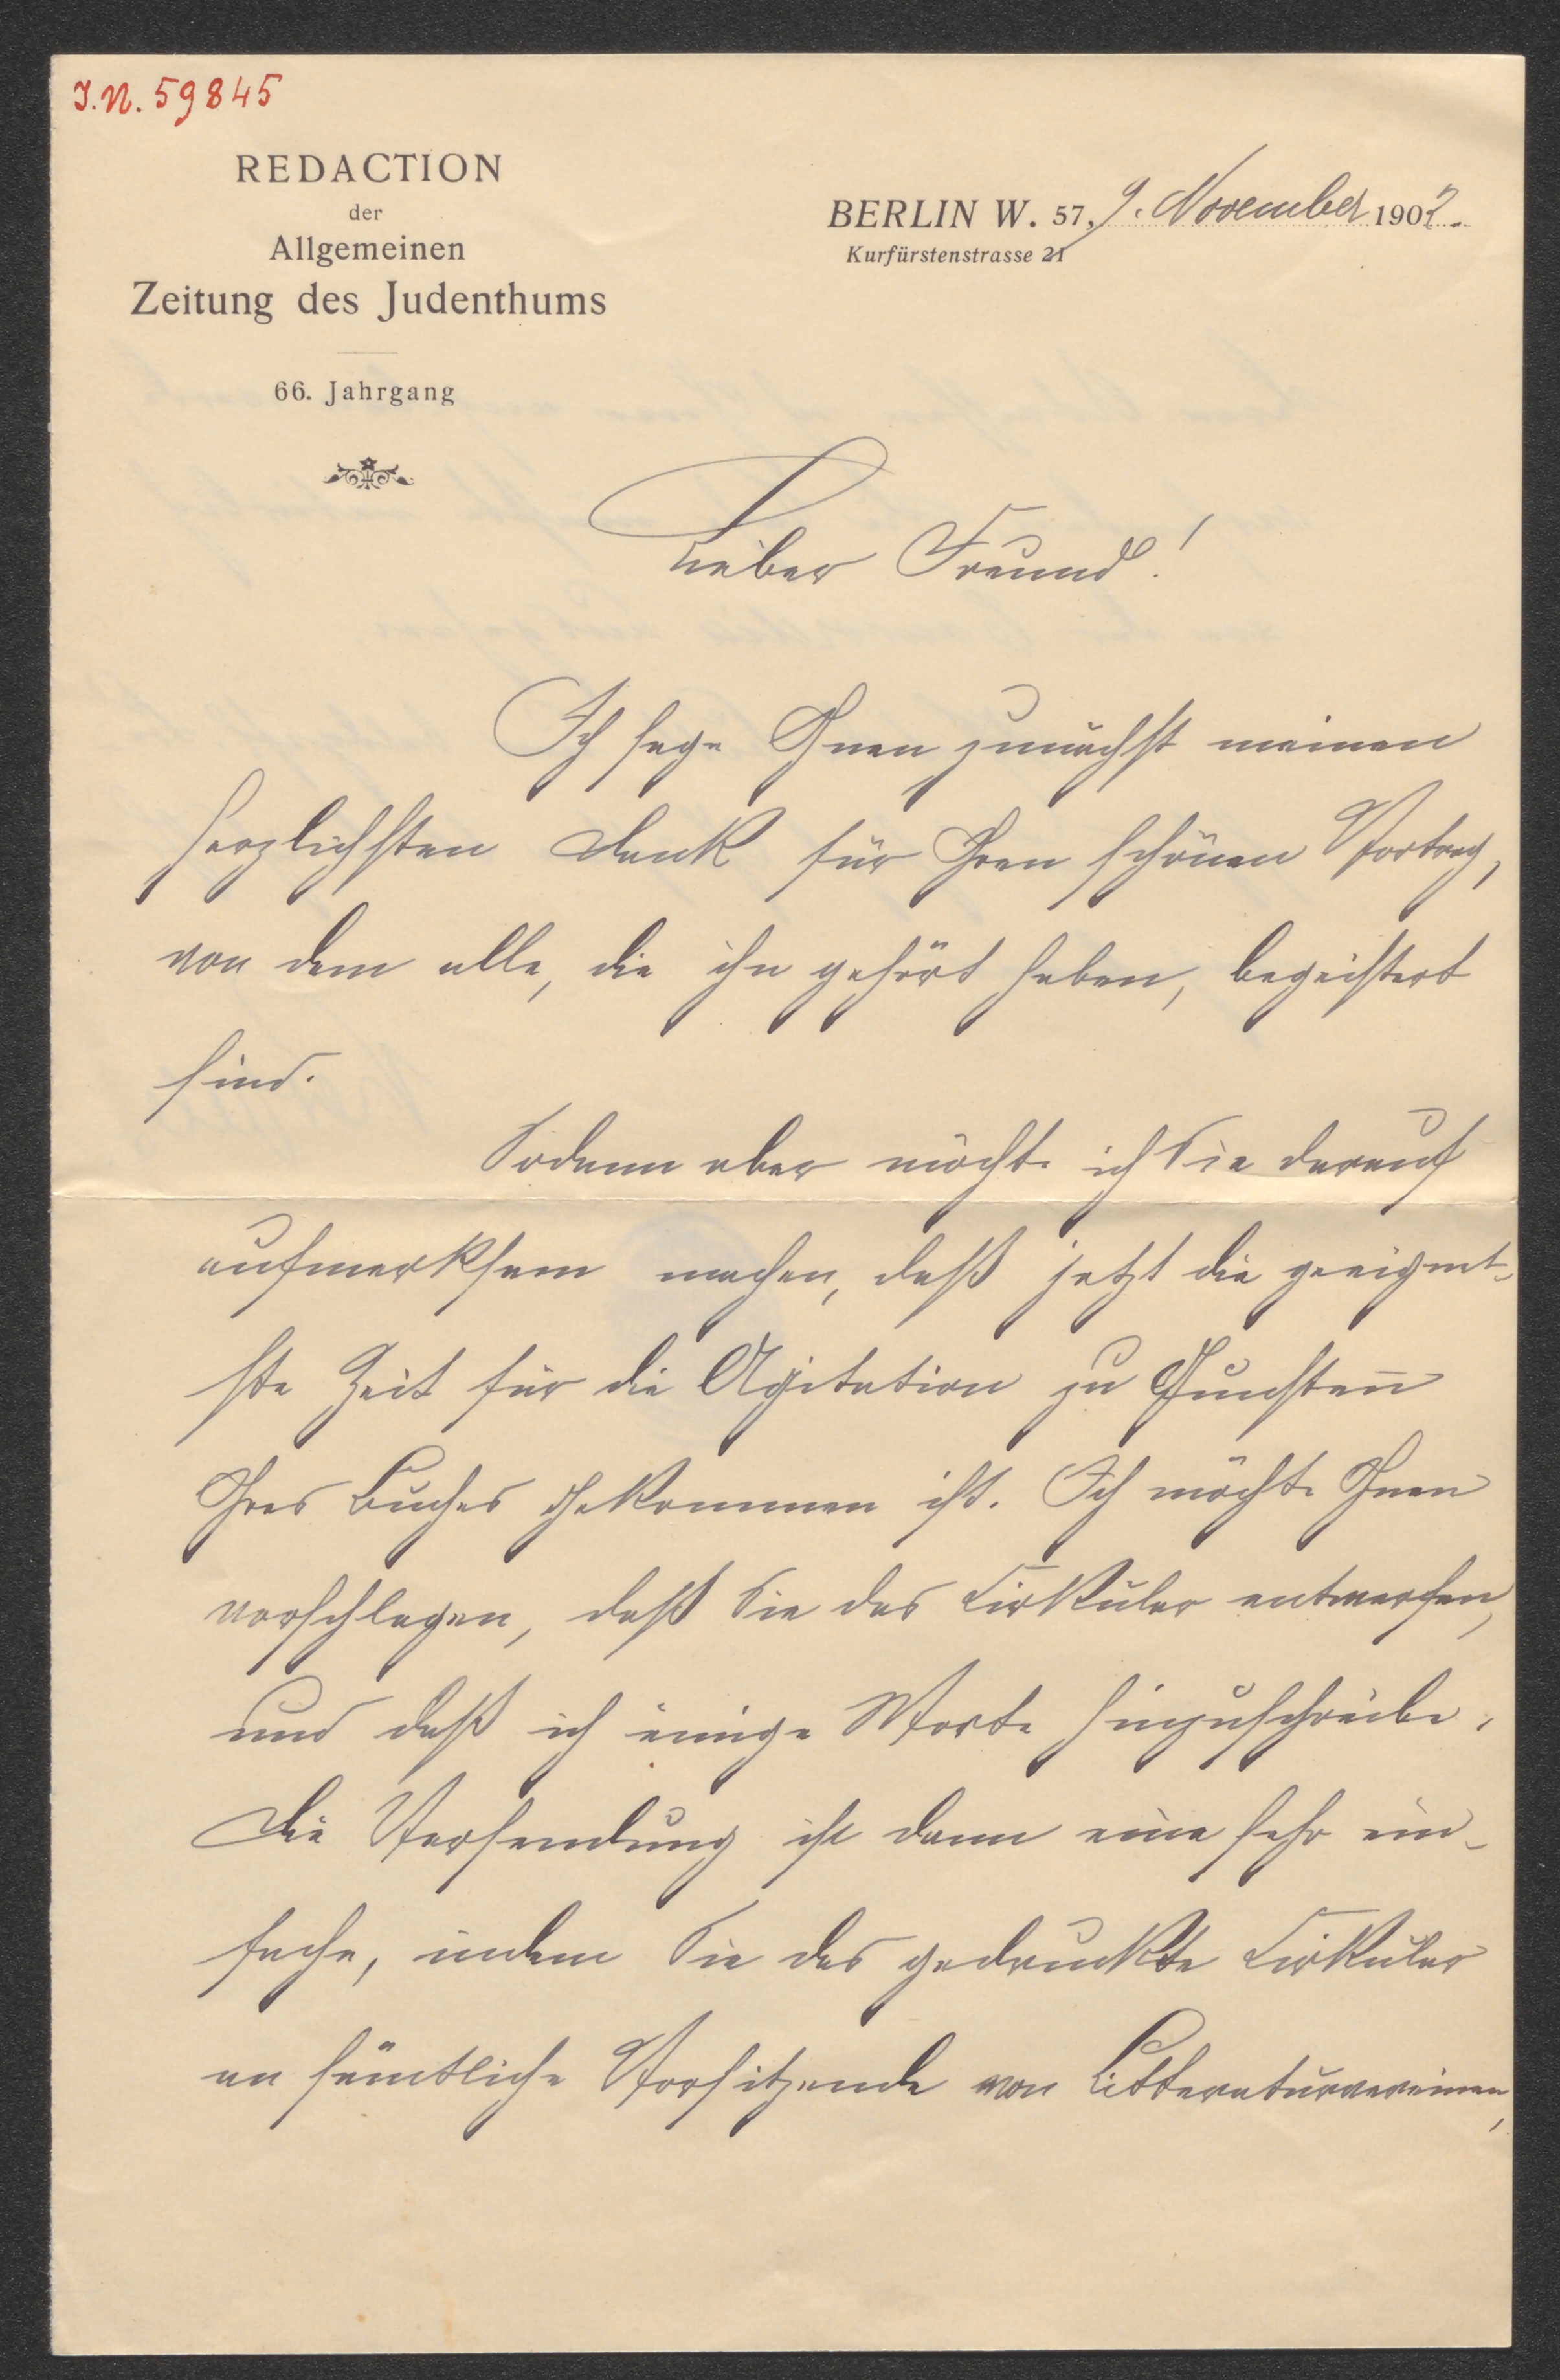 J.N. 59845
REDACTION
der
Allgemeinen
Zeitung des Judenthums
66. Jahrgang
BERLIN W. 57, 9. November 1902.
Kurfürstenstrasse 21
Lieber Freund!
Ich sage Ihnen zunächst meinen
herzlichsten Dank für Ihren schönen Vortrag,
von dem alle, die ihn gehört haben, begeistert
sind.
Sodann aber möchte ich Sie darauf
aufmerksam machen, daß jetzt die geeignet-
ste Zeit für die Agitation zu Gunsten
Ihres Buches gekommen ist. Ich möchte Ihnen
vorschlagen, daß Sie das Cirkular entwerfen,
und daß ich einige Worte hinzuschreibe.
Die Versendung ist dann eine sehr ein-
fache, indem Sie das gedruckte Cirkular
an sämtliche Vorsitzende von Litteraturvereinen,